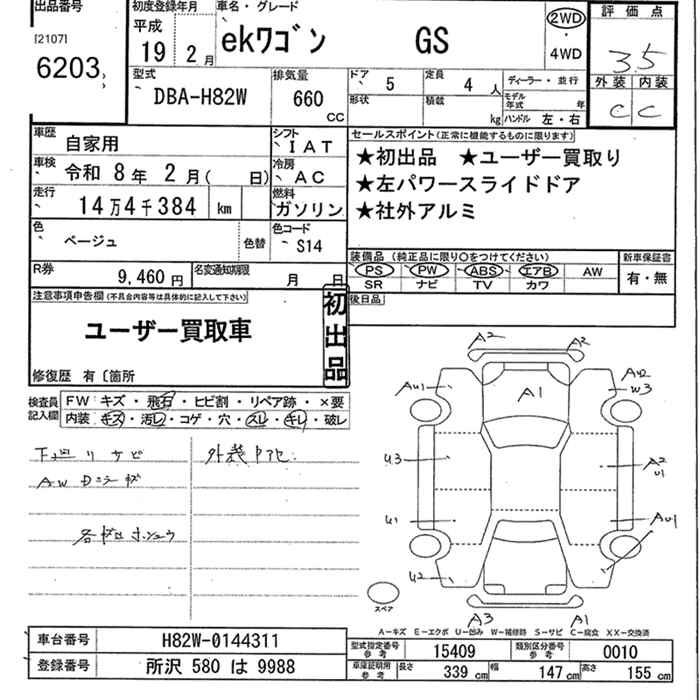 出品番号
[2107]
6203
初度登録年月
平成
19 2月
車名・グレード
ekワゴン GS
2WD
・
4WD
評価点
3.5
外装 内装
C C
型式
DBA-H82W
排気量
660
CC
ドア 5
形状
定員 4人
積載 kg
ディーラー・並行
モデル年式 年
ハンドル 左・右
車歴 自家用
車検 令和 8年 2月( 日)
走行 14万4千384 km
色 ベージュ 色替
シフト IAT
冷房 AC
燃料 ガソリン
色コード S14
R券 9,460円
名変通知期限 月 日
セールスポイント(正常に機能するものに限ります)
★初出品 ★ユーザー買取り
★左パワースライドドア
★社外アルミ
装備品(純正品に限り○をつけてください)
PS PW ABS エアB AW
SR ナビ TV カワ
新車保証書
有・無
後日品
注意事項申告欄(不具合内容等は具体的に記入して下さい)
ユーザー買取車
初出品
修復歴 有〔箇所
検査員記入欄
FW キズ・飛石・ヒビ割・リペア跡・×要
内装・キズ・汚レ・コゲ・穴・スレ・キレ・破レ
サビ
AW
外装
A2 A2
A1
AU1
AU2
W3
U3
A2
U1
U1
AU1
U2
A3 A1
スペア
A−キズ E−エクボ U−凹み W−補修跡 S−サビ C−腐食 XX−交換済
車台番号 H82W-0144311
登録番号 所沢 580 は 9988
型式指定番号 参考 15409
類別区分番号 参考 0010
車庫証明用 参考 長さ 339cm 幅 147cm 高さ 155cm